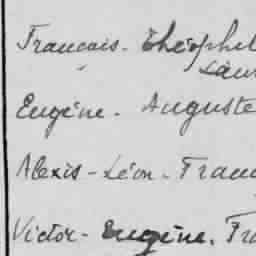 Francois - Théophil
Laur
Eugène - Auguste
Alexis - Léon - Franç
Victor - Eugène. Fra